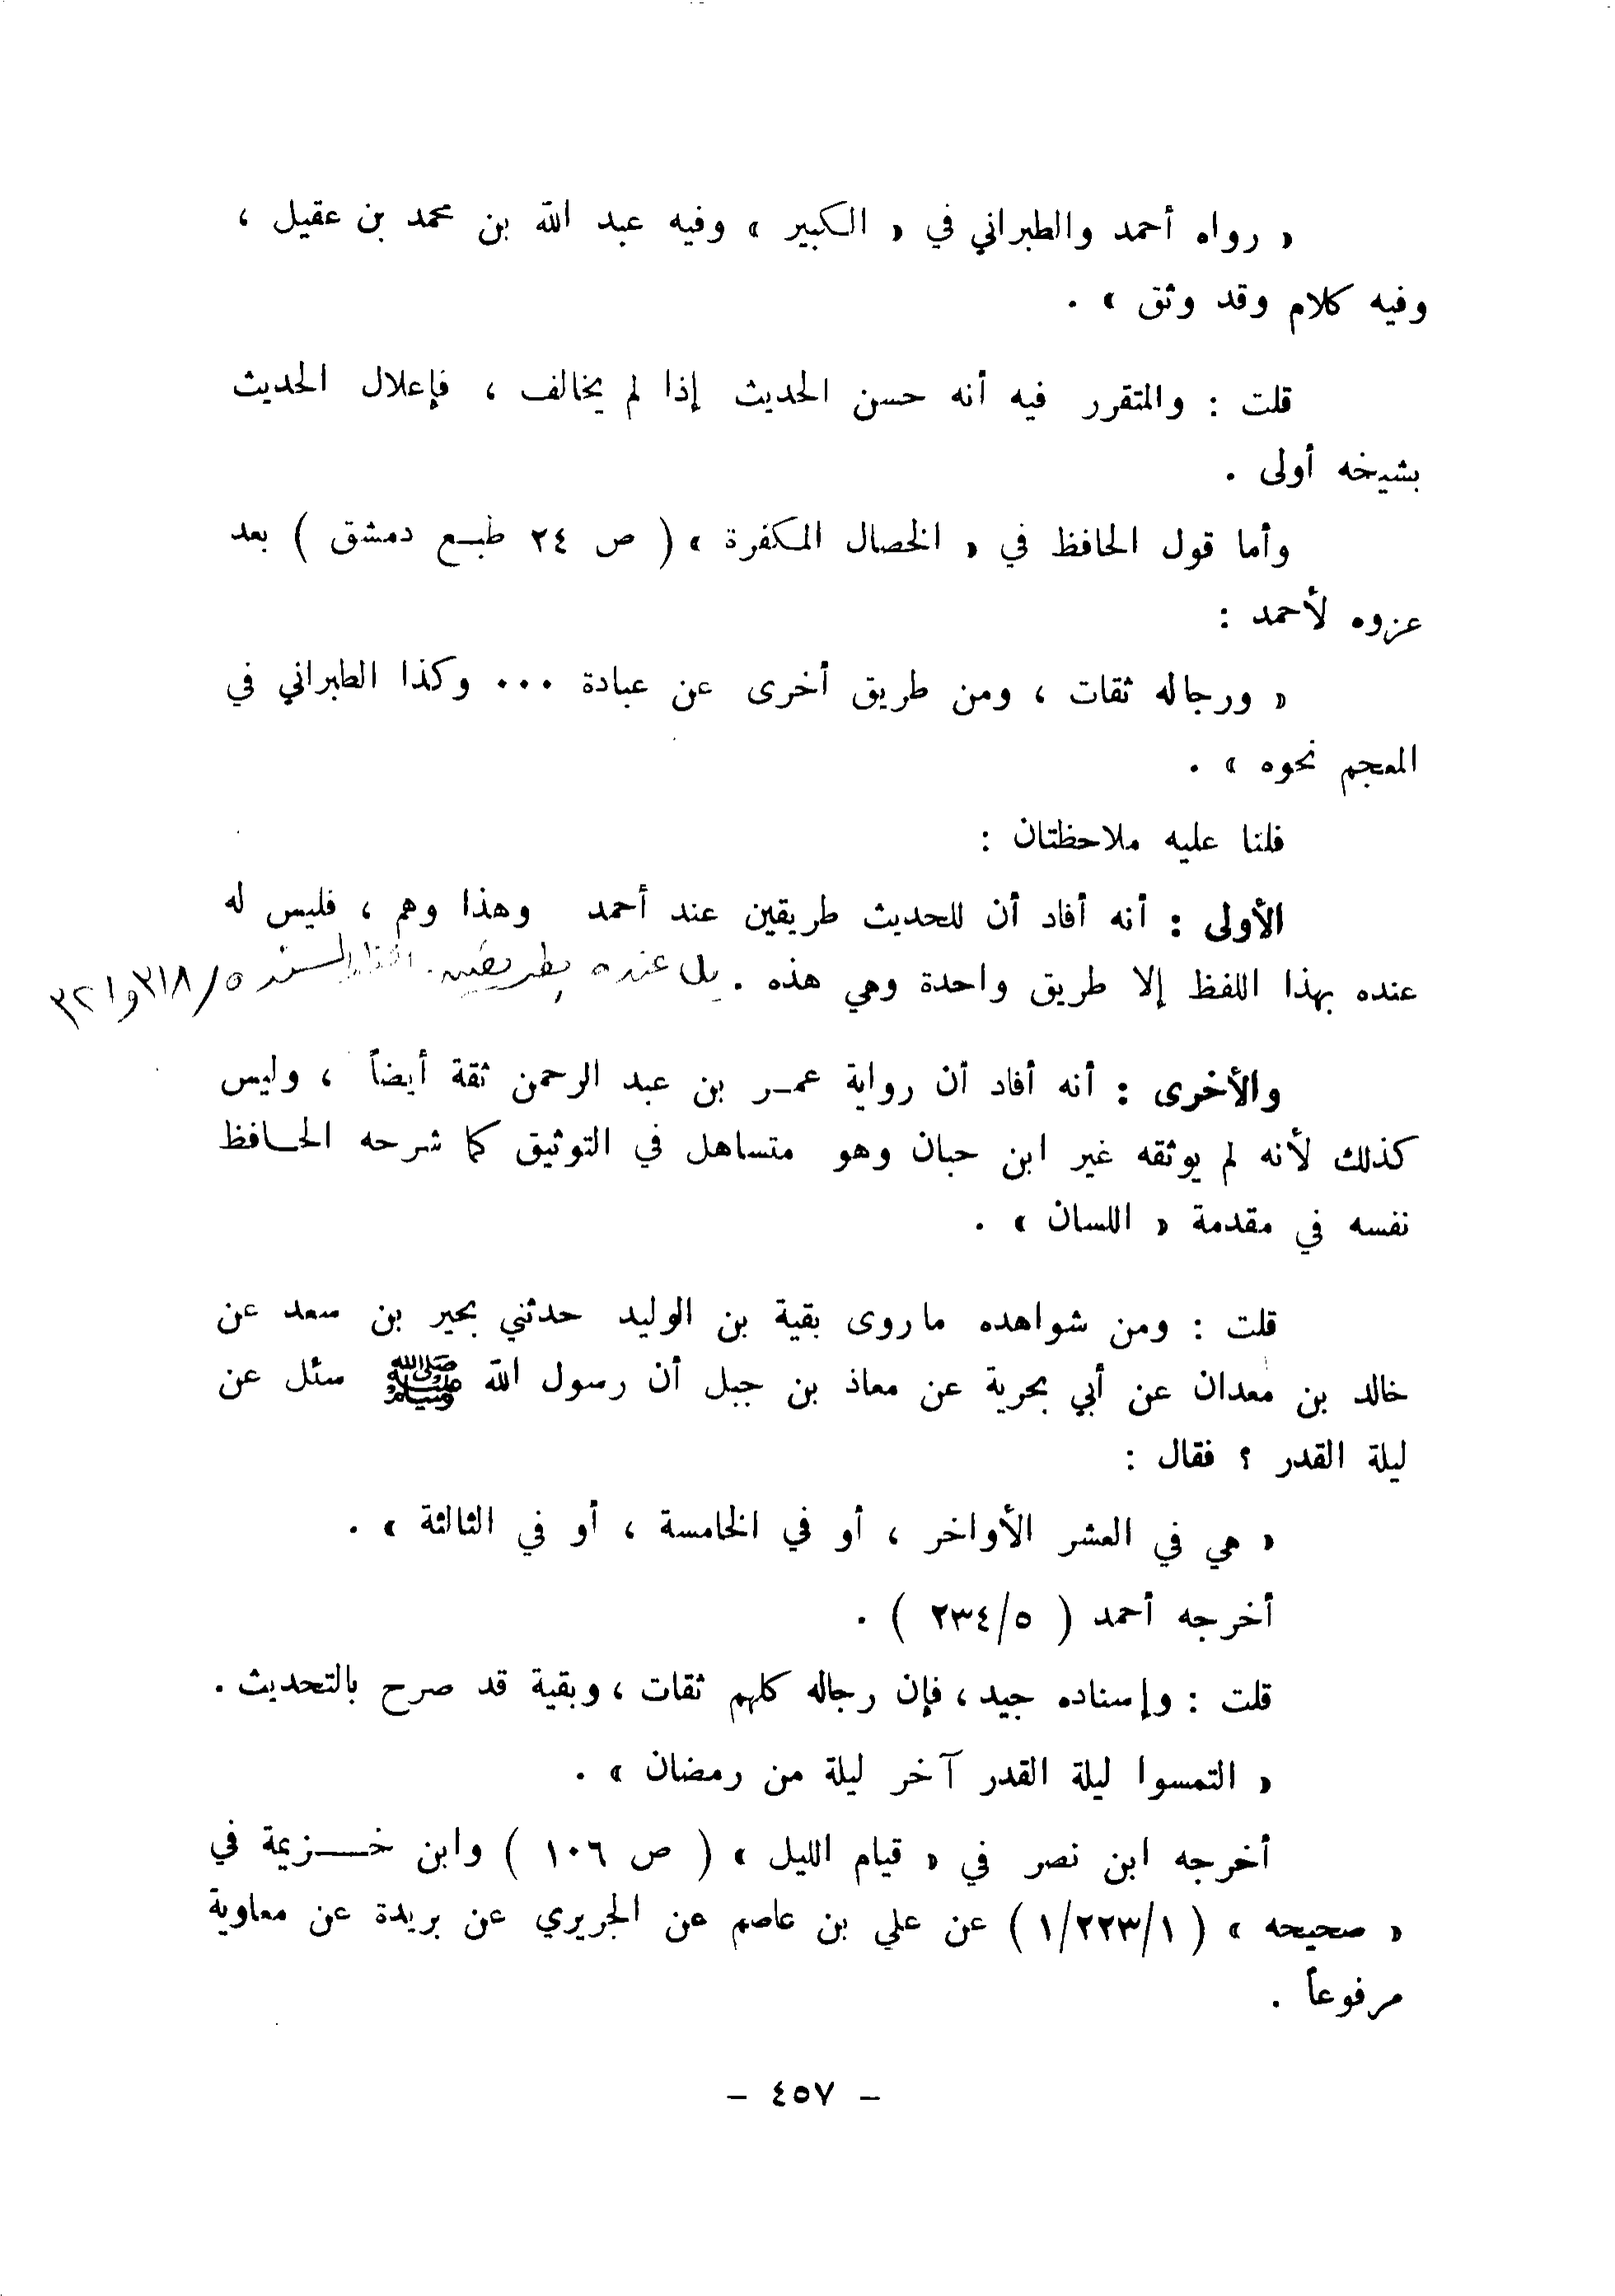 « رواه أحمد والطبراني في « الكبير » وفيه عبد الله بن محمد بن عقيل ،
وفيه كلام وقد وثق » .
قلت : والمتقرر فيه أنه حسن الحديث إذا لم يخالف ، فإعلال الحديث
بشيخه أولى .
وأما قول الحافظ في « الخصال المكفرة » ( ص ٢٤ طبع دمشق ) بعد
عزوه لأحمد :
« ورجاله ثقات ، ومن طريق أخرى عن عبادة ... وكذا الطبراني في
المعجم نحوه » .
فلنا عليه ملاحظتان :
الأولى : أنه أفاد أن للحديث طريقين عند أحمد وهذا وهم ، فليس له
عنده بهذا اللفظ إلا طريق واحدة وهي هذه . بل عنده بطريقين. انظر المسند ٥/٣١٨ و٣٢١
والأخرى : أنه أفاد أن رواية عمر بن عبد الرحمن ثقة أيضاً ، وليس
كذلك لأنه لم يوثقه غير ابن حبان وهو متساهل في التوثيق كما شرحه الحافظ
نفسه في مقدمة « اللسان » .
قلت : ومن شواهده ماروى بقية بن الوليد حدثني بحير بن سعد عن
خالد بن معدان عن أبي بحرية عن معاذ بن جبل أن رسول الله ﷺ سئل عن
ليلة القدر ؟ فقال :
« هي في العشر الأواخر ، أو في الخامسة ، أو في الثالثة » .
أخرجه أحمد ( ٥/٢٣٤ ) .
قلت : وإسناده جيد ، فإن رجاله كلهم ثقات ، وبقية قد صرح بالتحديث .
« التمسوا ليلة القدر آخر ليلة من رمضان » .
أخرجه ابن نصر في « قيام الليل » ( ص ١٠٦ ) وابن خزيمة في
« صحيحه » ( ١/٢٢٣/١ ) عن علي بن عاصم عن الجريري عن بريدة عن معاوية
مرفوعاً .
- ٤٥٧ -